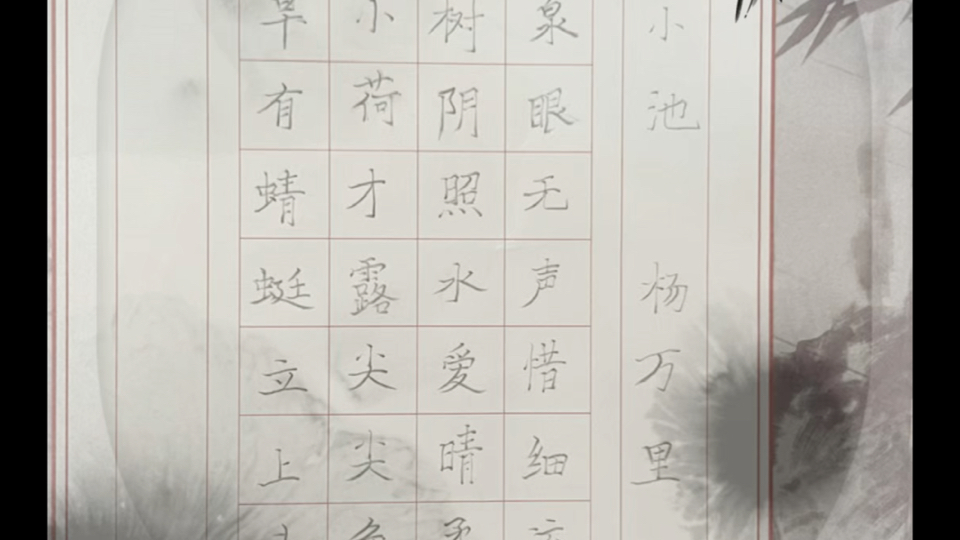 小池 杨万里
泉眼无声惜细
树阴照水爱晴
小荷才露尖尖
早有蜻蜓立上